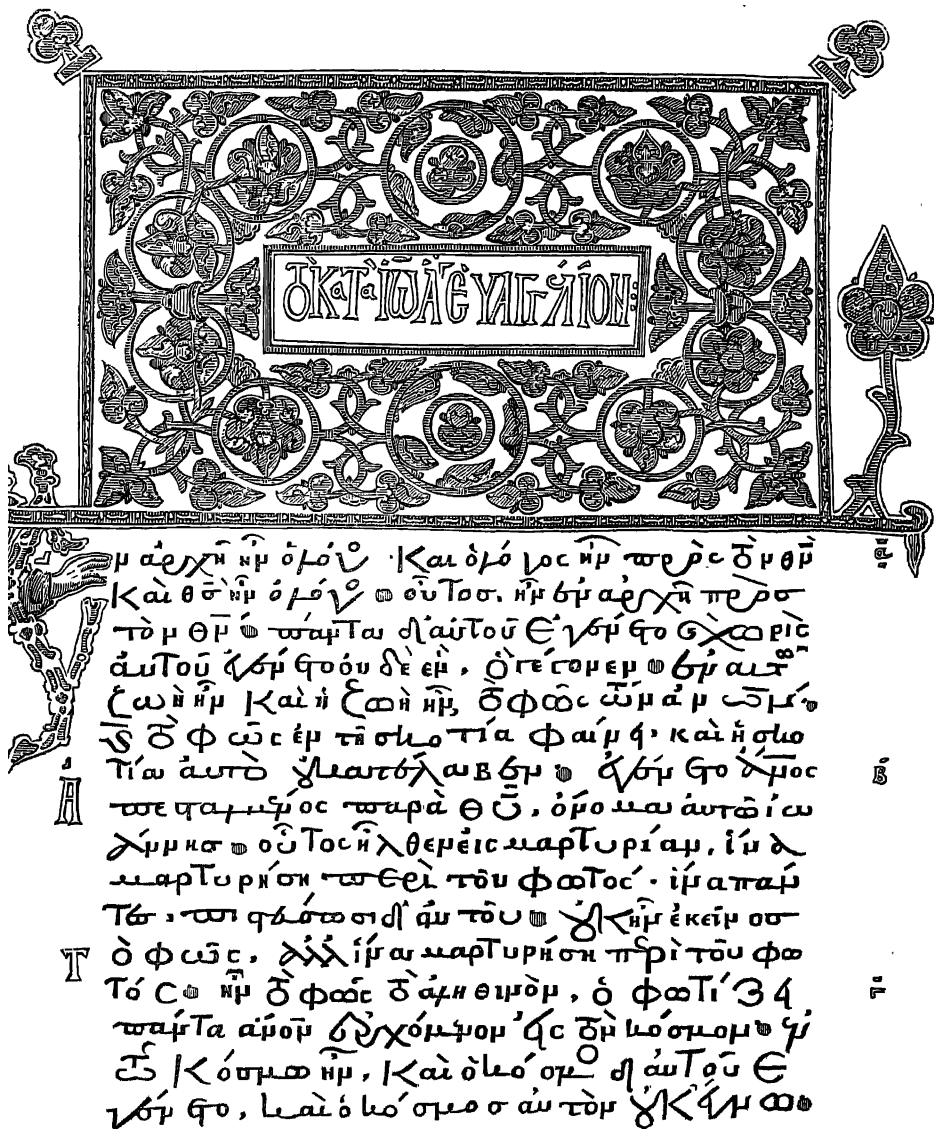 Τὸ κατὰ Ἰωᾱ εὐαγγέλιον:
Ἐν ἀρχῆ ἦν ὁ λόγος · Καὶ ὁ λόγος ἦν πρὸς τὸν θν̅ α̅
Καὶ θσ̅ ἦν ὁ λόγος · οὗτοσ, ἦν ἐν ἀρχῆ πρὸσ
τὸν θν̅ · πάντα δι αὐτοῦ ἐγένετο καὶ χωρὶς
ἀυτοῦ ἐγένετο ὀυδὲ ἓν, ὃ γέγονεν · ἐν αυτῶ
ζωὴ ἦν Καὶ ἡ ζωὴ ἦν, τὸ φῶς τῶν ἀνω̅ν ·
καὶ τὸ φῶς ἐν τῆ σκοτία φαίνει · καὶ ἡ σκο
τία αὐτὸ οὐ κατέλαβεν · ἐγένετο ἄν̅ος β̅
Ἀπεσταλμένος παρὰ θῡ, ὄνομα ἀυτῶ ἰω
άννησ · οὗτος ἦλθεν εἰς μαρτυρίαν, ἵνα
μαρτυρήση περὶ τοῦ φωτός · ἵνα πάν
τες, πιστεύσωσι δι ἀυτοῦ · οὐκ ἦν ἐκεῖνοσ
Τὸ φῶς, ἀλλ ἵνα μαρτυρήση περὶ τοῦ φω
τός · ἦν τὸ φῶς τὸ ἀληθινὸν, ὃ φωτίζει γ̅
πάντα ἄνο̅ν ἐρχόμενον εἰς τὸν κόσμον · ἐν
τῶ Κόσμω ἦν, Καὶ ὁ κόσμος δι ἀυτοῦ ἐ
γένετο, καὶ ὁ κόσμοσ αὐτὸν οὐκ ἔγνω ·